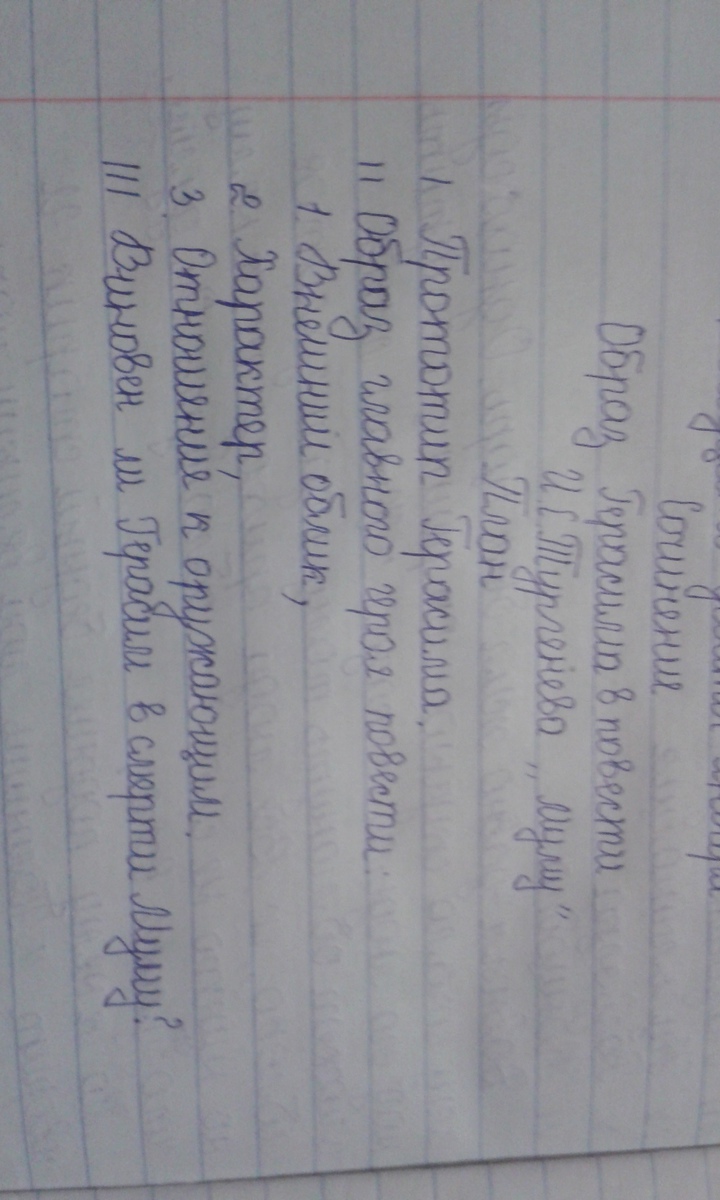 Сочинение
Образ Герасима в повести
И.С. Тургенева „Муму"
План
I Прототип Герасима.
II Образ главного героя повести:
1. Внешний облик,
2. Характер,
3. Отношение к окружающим.
III Виновен ли Герасим в смерти Муму?